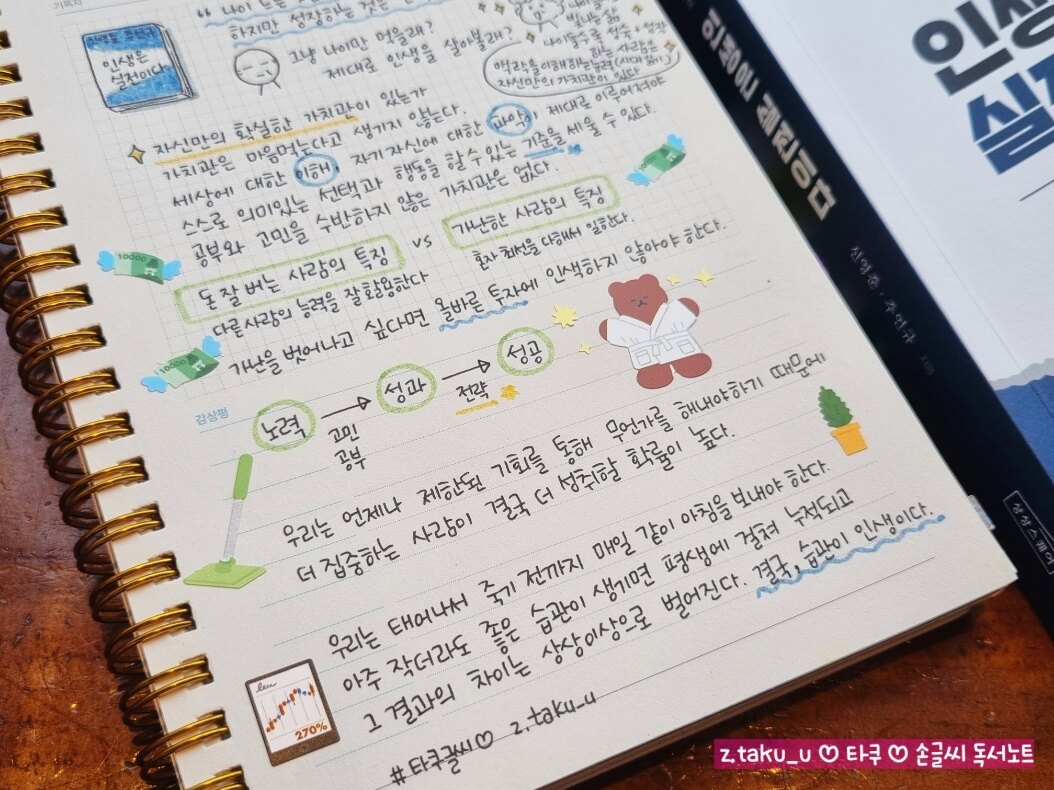 기록처
" 나이 드는
하지만 성장하는 것은
그냥 나이만 먹을래?
제대로 인생을 살아볼래?
나이들수록 성숙 + 성장
하는 사람은
맥락을 이해하는 능력 (시대 읽기)
자신만의 가치관이 있다
인생은
실전이다
자신만의 확실한 가치관이 있는가
가치관은 마음먹는다고 생기지 않는다.
세상에 대한 이해 자기 자신에 대한 파악이 제대로 이루어져야
스스로 의미있는 선택과 행동을 할 수 있는 기준을 세울 수 있다.
공부와 고민을 수반하지 않은 가치관은 없다.
돈 잘 버는 사람의 특징 vs 가난한 사람의 특징
다른 사람의 능력을 잘 활용한다 혼자 최선을 다해서 일한다.
가난을 벗어나고 싶다면 올바른 투자에 인색하지 않아야 한다.
10000
10000
감상평
노력 → 성과 → 성공
고민
공부
전략
우리는 언제나 제한된 기회를 통해 무언가를 해내야하기 때문에
더 집중하는 사람이 결국 더 성취할 확률이 높다.
우리는 태어나서 죽기 전까지 매일 같이 아침을 보내야 한다.
아주 작더라도 좋은 습관이 생기면 평생에 걸쳐 누적되고
그 결과의 차이는 상상이상으로 벌어진다. 결국, 습관이 인생이다.
270%
#타쿠글씨♡ z.taku_u
인생
실전
신영준 · 주언규 지음
상상스퀘어
z.taku_u ♡ 타쿠 ♡ 손글씨 독서노트